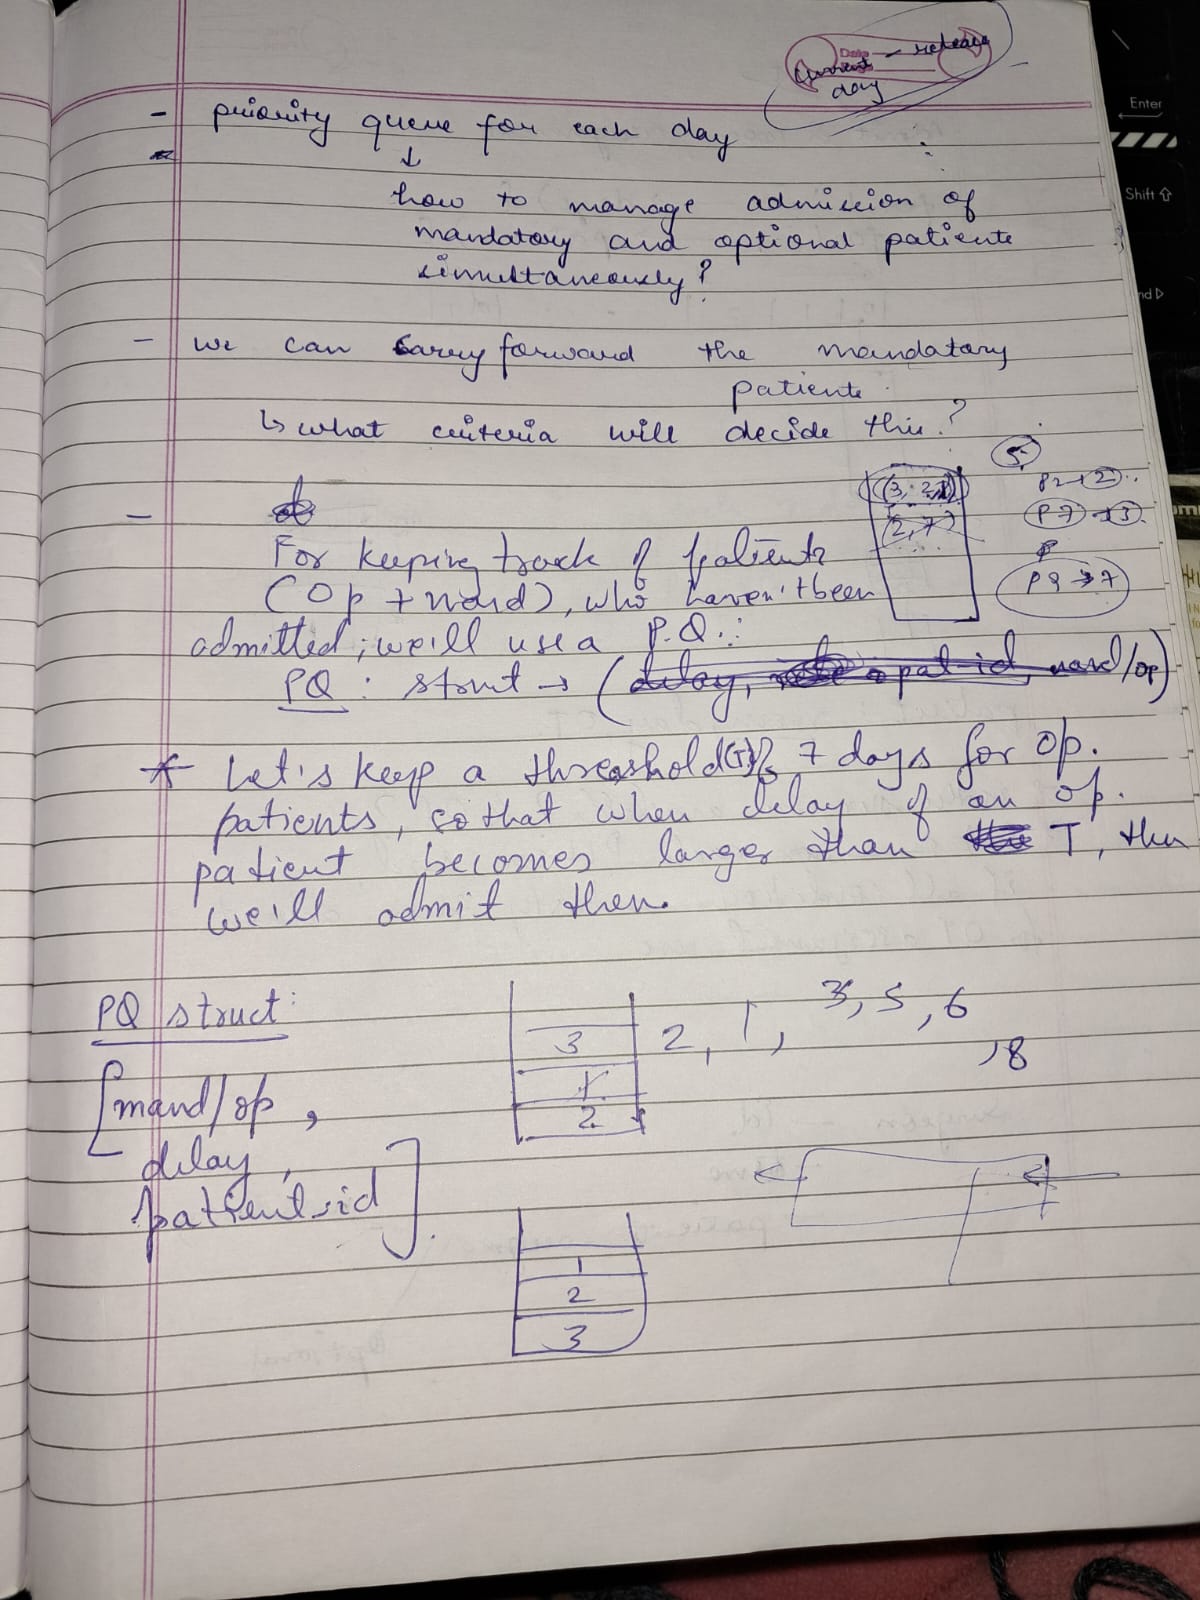 Date
current - release
day
- priority queue for each day
↓
how to manage admission of
mandatory and optional patients
simultaneously?
- we can carry forward the mandatory
patients.
↳ what criteria will decide this?
5
(3, 2)
(2, 7)
P2 → 2
P7 → 3
P9 → 7
-
For keeping track of patients
(Op + mand), who haven't been
admitted; we'll use a P.Q.:
PQ: struct → (delay, pat-id, mand/op)
* Let's keep a threshold(T) of 7 days for op.
patients, so that when delay of an op.
patient becomes larger than T, then
we'll admit then.
PQ struct:
[mand/op,
delay,
patient-id].
3
1
2
2, 1, 3, 5, 6
, 8
1
2
3
Enter
Shift ⇧
nd ▷